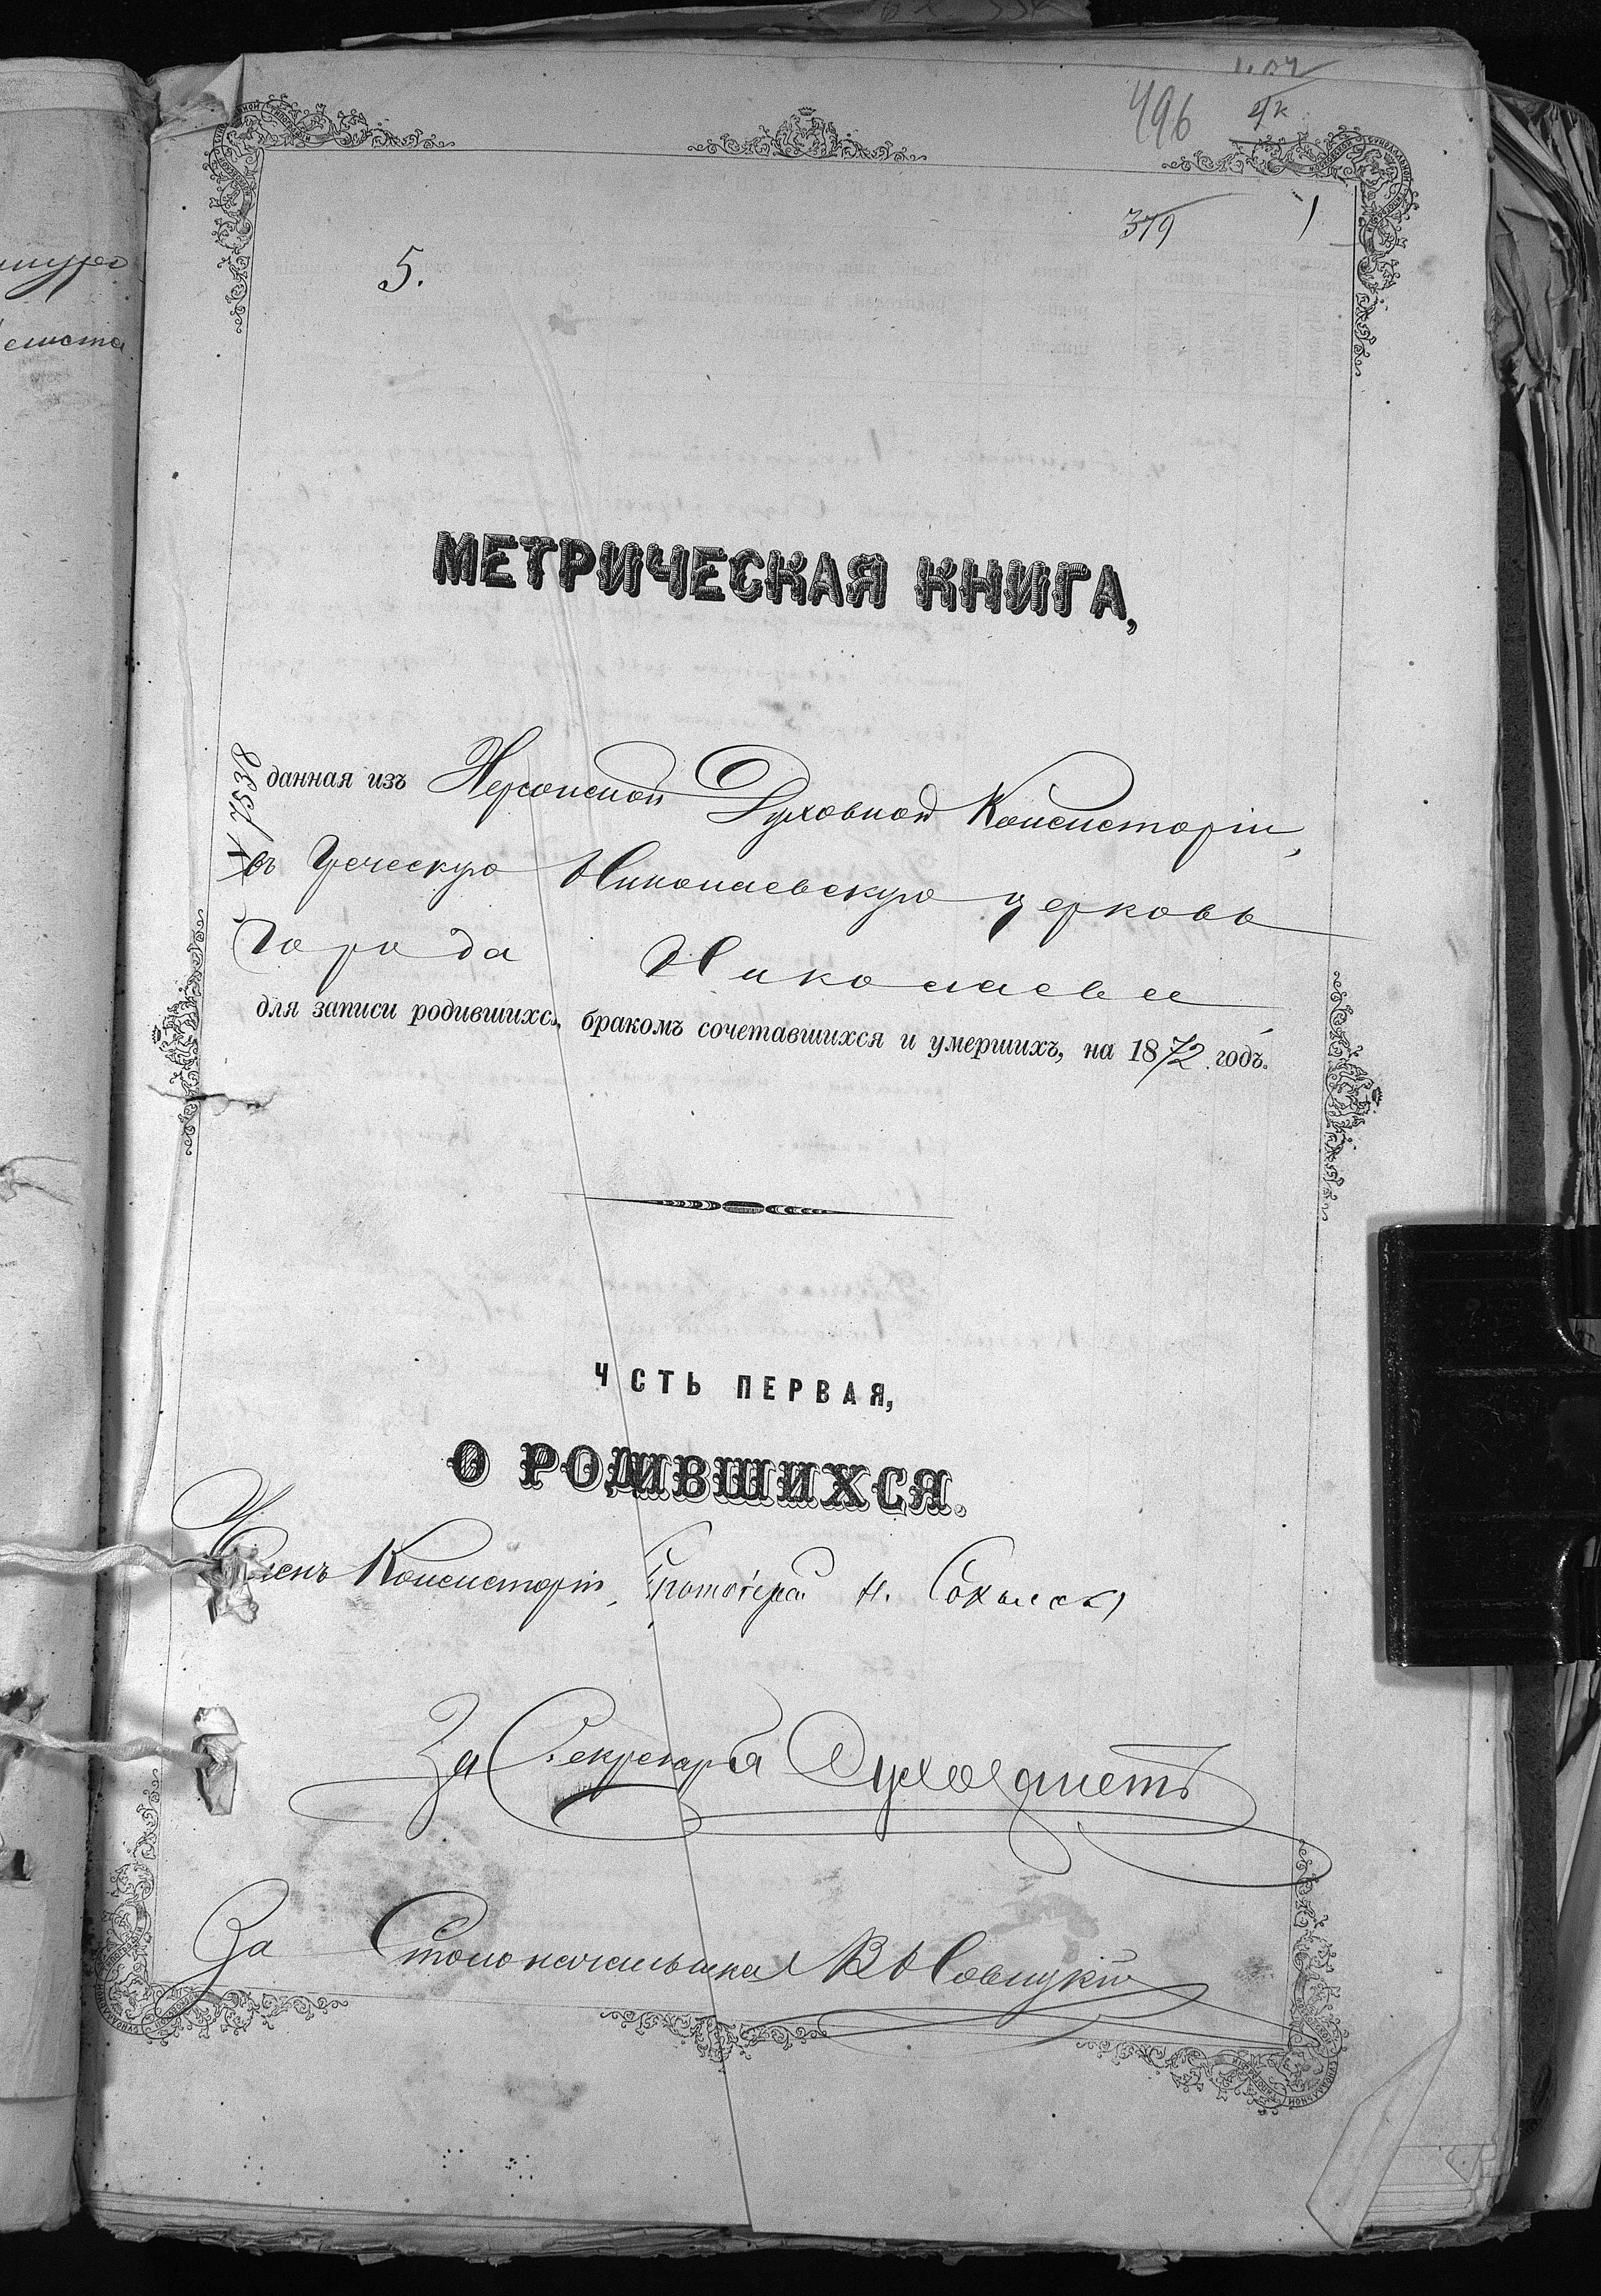 496
е/к
379
5.
МЕТРИЧЕСКАЯ КНИГА,
№ 7538
данная изъ Херсонской Духовной Консисторіи,
въ Греческую Николаевскую церковь
Города Николаева
для записи родившихся, бракомъ сочетавшихся и умершихъ, на 1872 годъ.
Ч СТЬ ПЕРВАЯ,
О РОДИВШИХСЯ.
Членъ Консисторіи, Протоіерей Н. Сокольскій
За Секретаря Сухолметъ
За Столоначальника В Новицкій